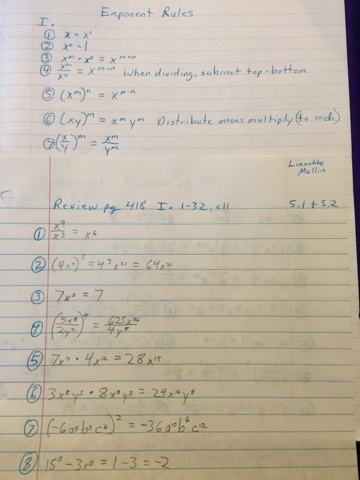 Exponent Rules
I.
① x = x¹
② x⁰ = 1
③ xᵐ · xⁿ = xᵐ⁺ⁿ
④ xᵐ/xⁿ = xᵐ⁻ⁿ when dividing, subract top-bottom
⑤ (xᵐ)ⁿ = xᵐ·ⁿ
⑥ (xy)ᵐ = xᵐyᵐ Distribute means multiply (to each)
⑦ (x/y)ᵐ = xᵐ/yᵐ
Linnette
Mollin
Review pg 418 I. 1-32, all 5.1 + 5.2
① x⁹/x³ = x⁶
② (4x⁷)³ = 4³x²¹ = 64x²¹
③ 7x⁰ = 7
④ = 625x
⑤ 4x¹² = 28x¹⁹
⑥ 3x⁸y⁵ · 8x⁸y³ = 24x¹⁶y⁸
⑦ (-6a⁵b³c⁶)² = -36a¹⁰b⁶c¹²
⑧ 15⁰ - 3x⁰ = 1 - 3 = -2